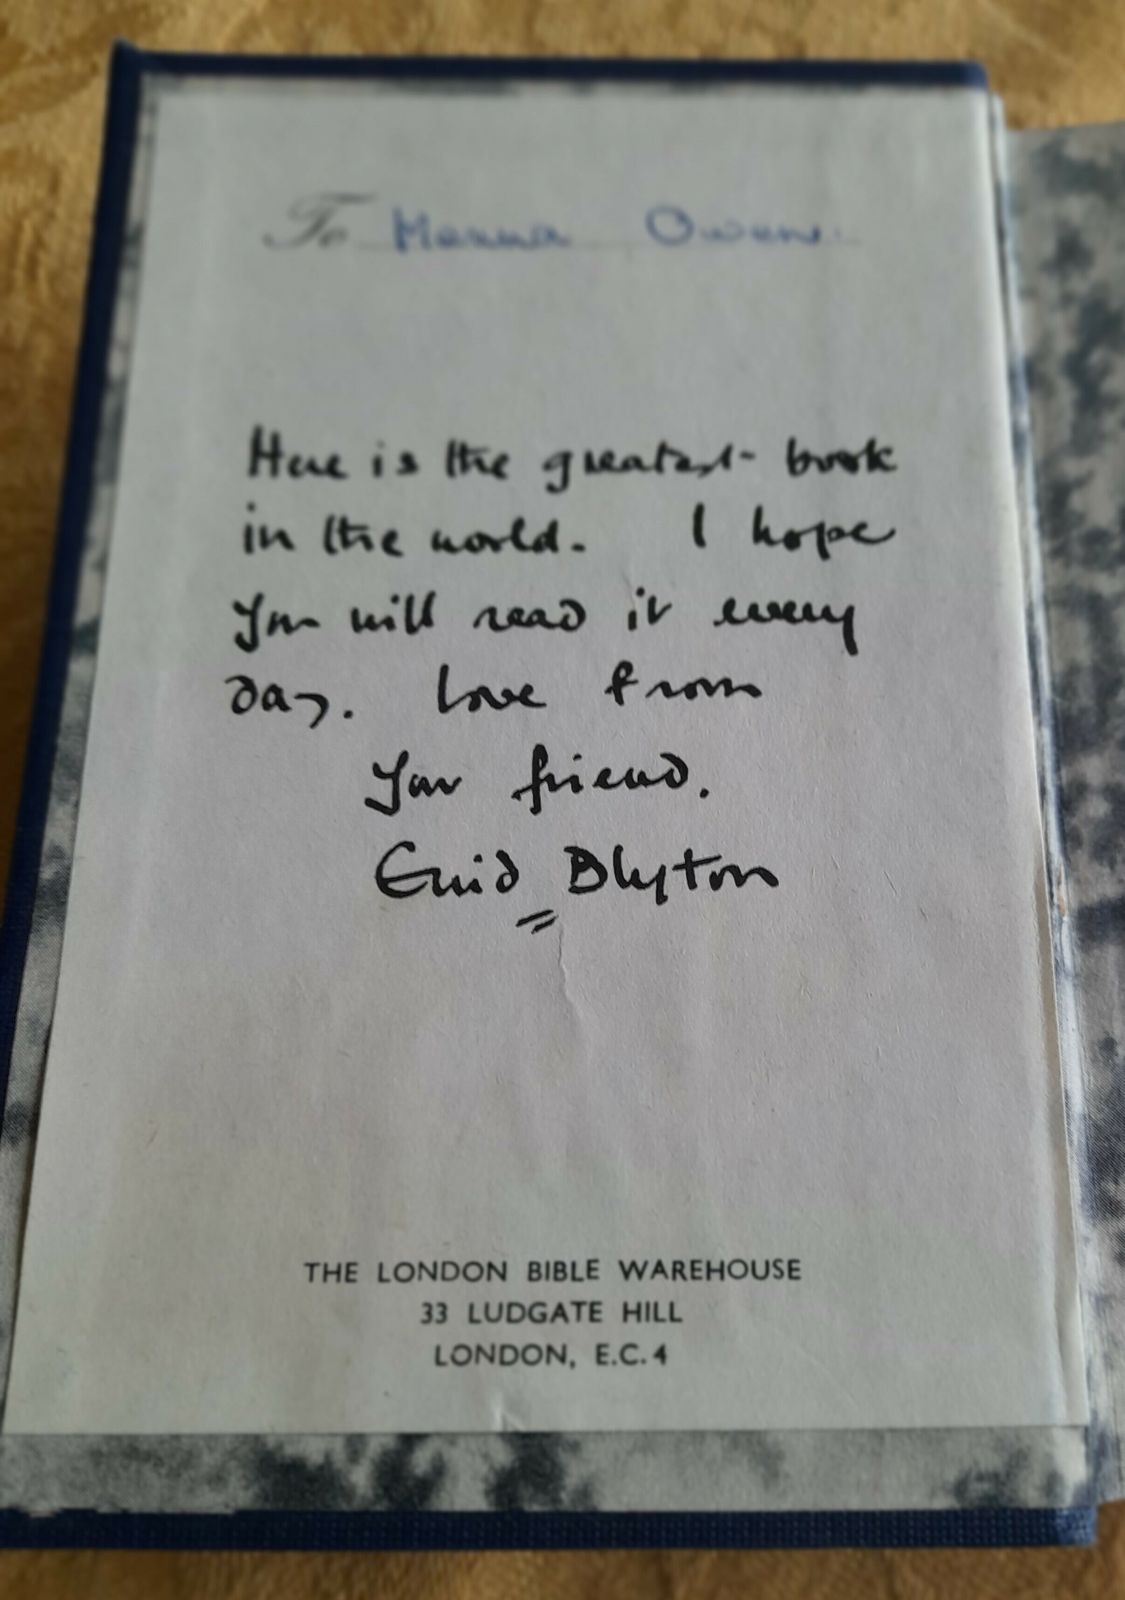 To Manna Owen.
Here is the greatest book
in the world. I hope
you will read it every
day. Love from
your friend.
Enid Blyton
THE LONDON BIBLE WAREHOUSE
33 LUDGATE HILL
LONDON, E.C.4